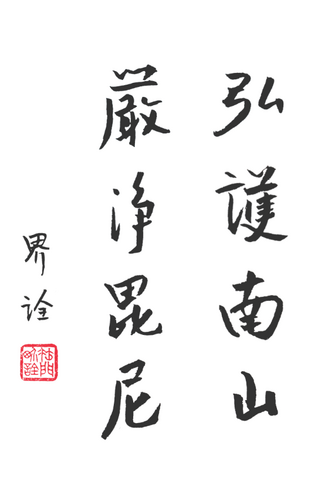 弘護南山
嚴净毘尼
界诠